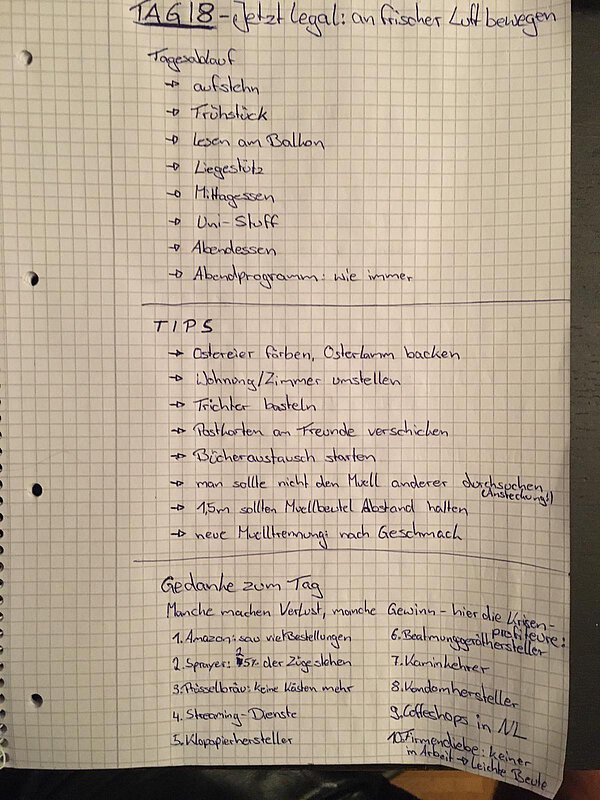 TAG 18 - Jetzt legal: an frischer Luft bewegen
Tagesablauf
→ aufstehn
→ Frühstück
→ lesen am Balkon
→ Liegestütz
→ Mittagessen
→ Uni-Stuff
→ Abendessen
→ Abendprogramm: wie immer
TIPS
→ Ostereier färben, Osterlamm backen
→ Wohnung/Zimmer umstellen
→ Trichter basteln
→ Postkarten an Freunde verschicken
→ Bücheraustausch starten
→ man sollte nicht den Muell anderer durchsuchen
(Ansteckung!)
→ 1,5m sollten Muellbeutel Abstand halten
→ neue Muelltrennung: nach Geschmack
Gedanke zum Tag
Manche machen Verlust, manche Gewinn - hier die Krisen-
profiteure:
1. Amazon: sau viel Bestellungen
2. Sprayer: der Züge stehen
3. Rösselbräu: keine Kästen mehr
4. Streaming-Dienste
5. Klopapierhersteller
6. Beatmungsgeräthersteller
7. Kaminkehrer
8. Kondomhersteller
9. Coffeshops in NL
10. Firmendiebe: keiner
in Arbeit → leichte Beute